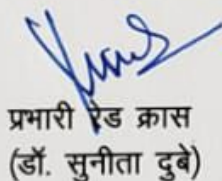 प्रभारी रेड क्रास
(डॉ. सुनीता दुबे)